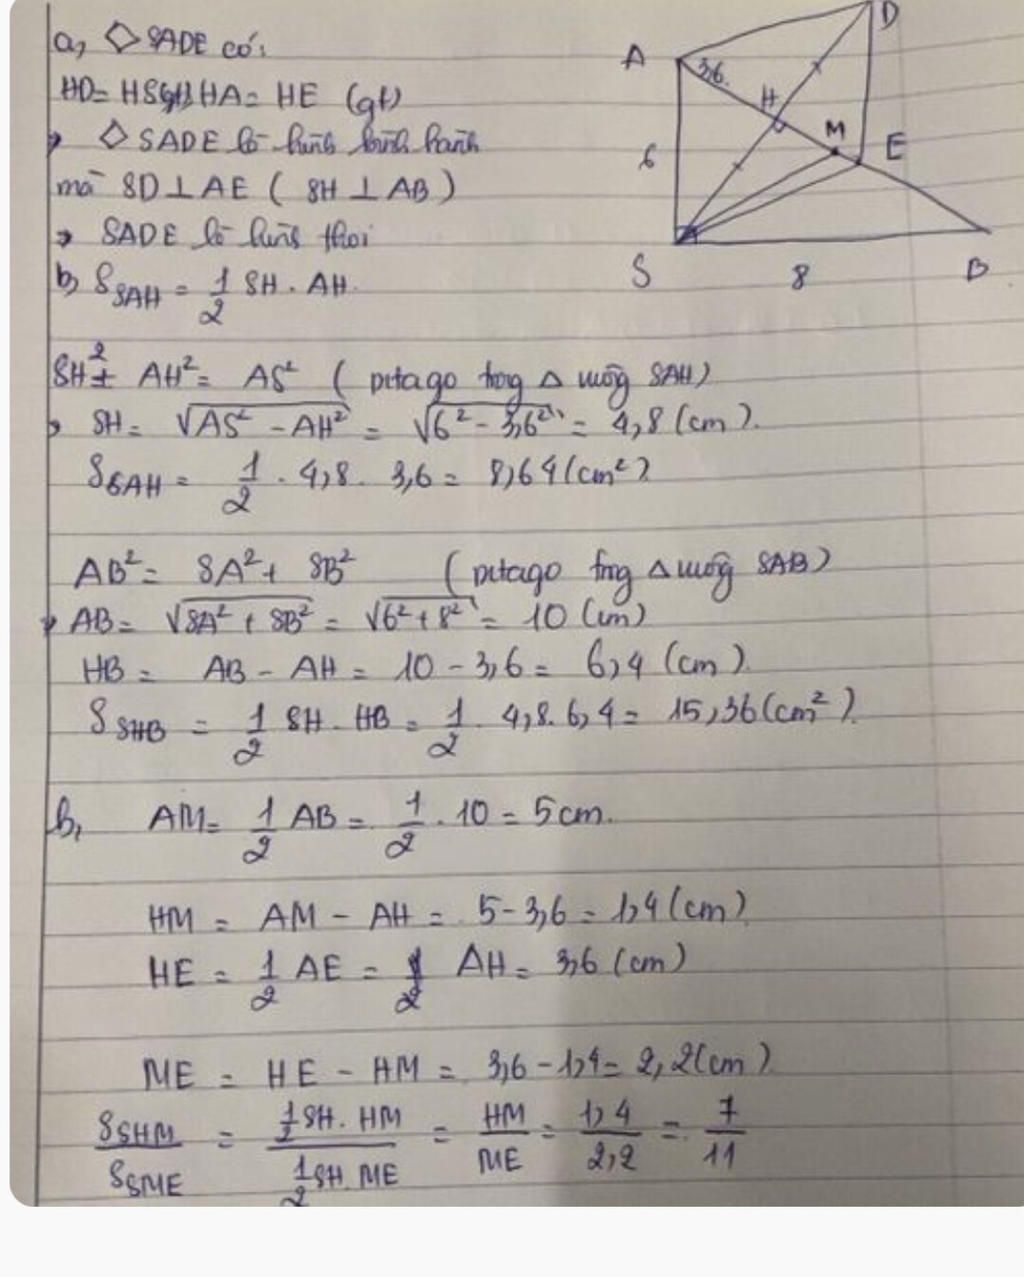 a, ◇ SADE có:
HD = HS (gt) HA = HE (gt)
→ ◇ SADE là hình bình hành
mà SD ⊥ AE ( SH ⊥ AB )
→ SADE là hình thoi
b, S_SAH = 1/2 SH . AH
SH² + AH² = AS² ( pitago trong △ vuông SAH )
→ SH = √(AS² - AH²) = √(6² - 3,6²) = 4,8 (cm).
S_SAH = 1/2 . 4,8 . 3,6 = 8,64 (cm²)
AB² = SA² + SB² ( pitago trong △ vuông SAB )
→ AB = √(SA² + SB²) = √(6² + 8²) = 10 (cm)
HB = AB - AH = 10 - 3,6 = 6,4 (cm)
S_SHB = 1/2 SH . HB = 1/2 . 4,8 . 6,4 = 15,36 (cm²).
b, AM = 1/2 AB = 1/2 . 10 = 5 cm.
HM = AM - AH = 5 - 3,6 = 1,4 (cm)
HE = 1/2 AE = 1/2 AH = 3,6 (cm)
ME = HE - HM = 3,6 - 1,4 = 2,2 (cm)
S_SHM / S_SME = (1/2 SH . HM) / (1/2 SH . ME) = HM / ME = 1,4 / 2,2 = 7 / 11
D
A
3,6
H
M
E
6
S
8
B